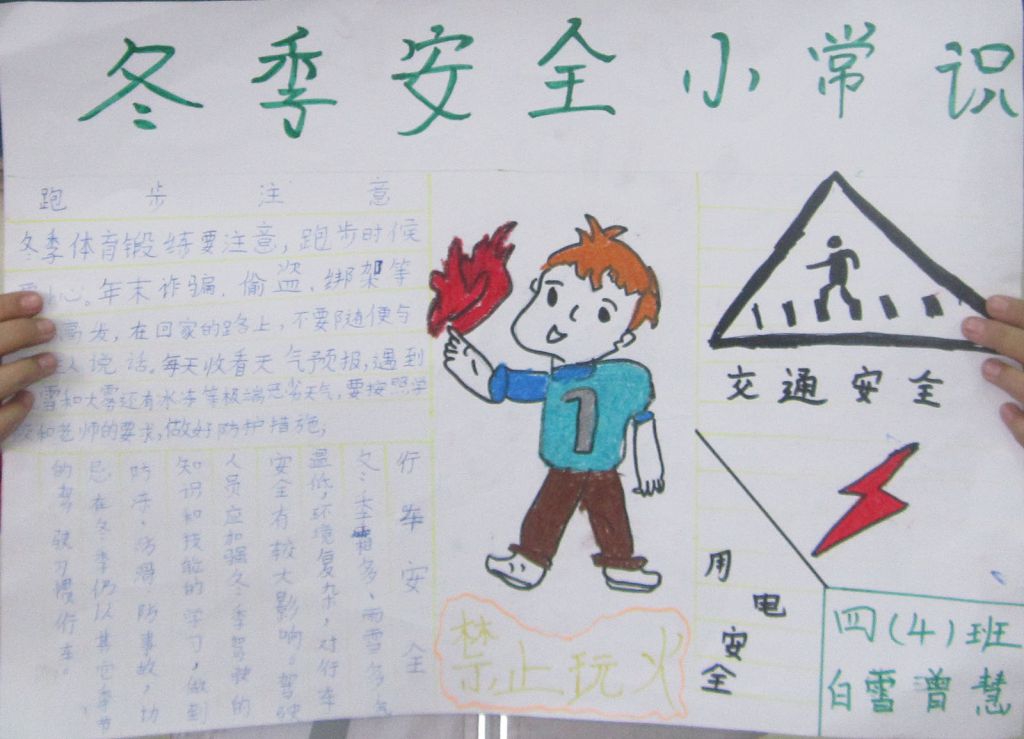 冬季安全小常识
跑步注意
冬季体育锻练要注意,跑步时候
心。年末诈骗、偷盗、绑架等
高发,在回家的路上,不要随便与
人说话。每天收看天气预报,遇到
雪和大雾还有冰冻等极端恶劣天气,要按照学
校和老师的要求,做好防护措施,
行车安全
冬季霜多、雨雪多,气
温低,环境复杂,对行车
安全有较大影响。驾驶
人员应加强冬季驾驶的
知识和技能的学习,做到
防冻、防滑、防事故,切
忌在冬季仍以其它季节
的驾驶习惯行车。
禁止玩火
交通安全
用电安全
四(4)班
白雪 曾慧